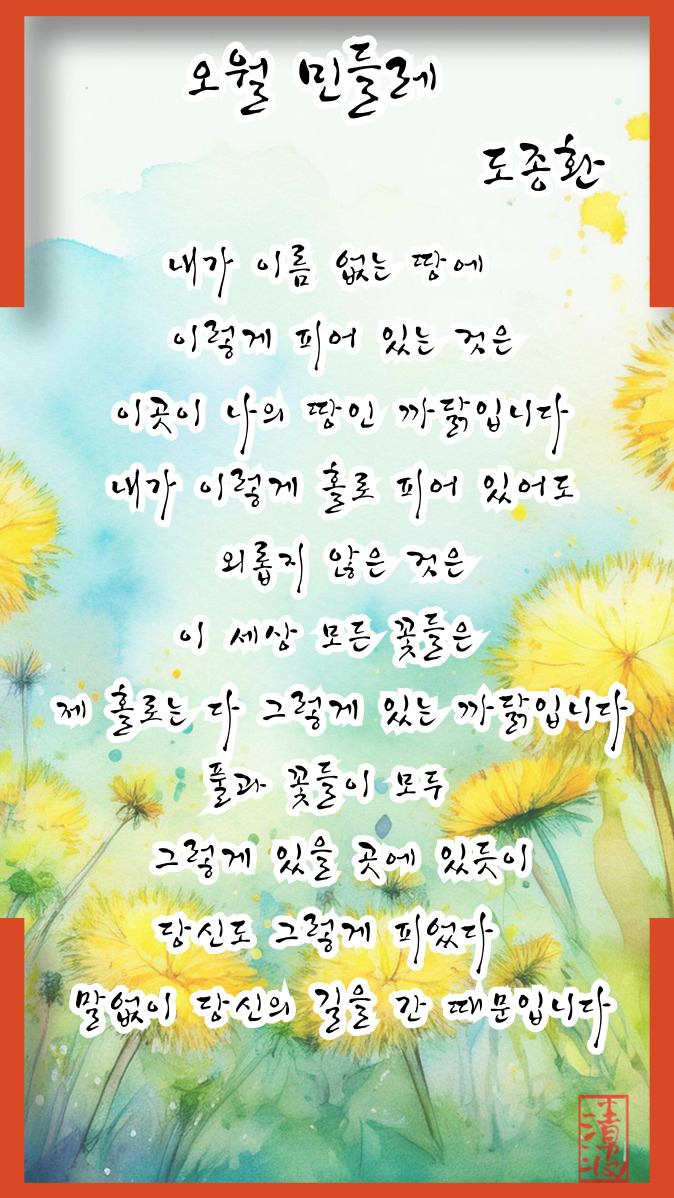 오월 민들레
도종환
내가 이름 없는 땅에
이렇게 피어 있는 것은
이곳이 나의 땅인 까닭입니다
내가 이렇게 홀로 피어 있어도
외롭지 않은 것은
이 세상 모든 꽃들은
제 홀로는 다 그렇게 있는 까닭입니다
풀과 꽃들이 모두
그렇게 있을 곳에 있듯이
당신도 그렇게 피었다
말없이 당신의 길을 간 때문입니다